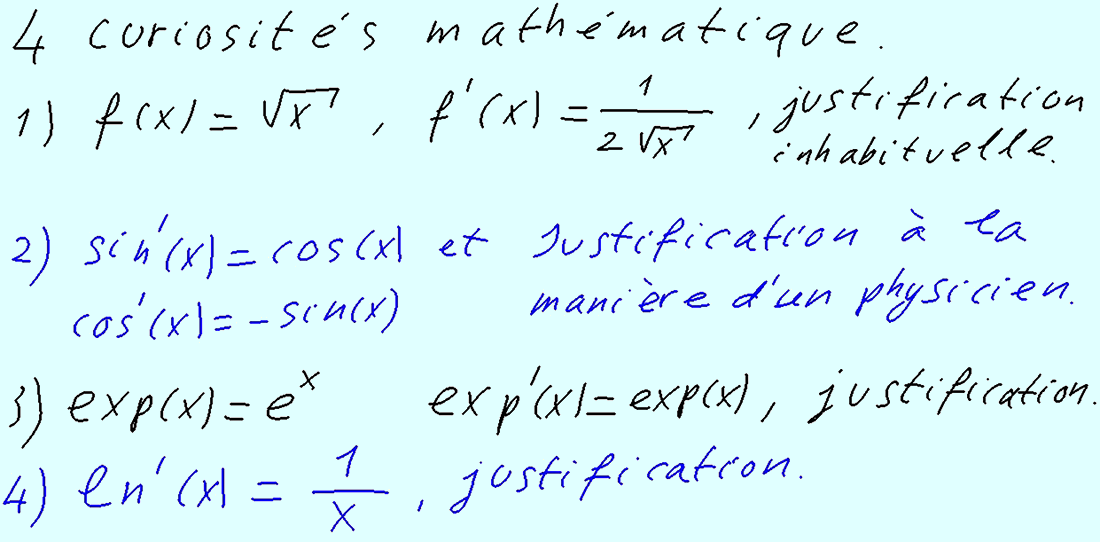 4 curiosités mathématique.
1) f(x) = √x , f'(x) = 1/(2√x) , justification
inhabituelle.
2) sin'(x) = cos(x) et Justification à la
cos'(x) = -sin(x) manière d'un physicien.
3) exp(x) = e^x exp'(x) = exp(x), justification.
4) ln'(x) = 1/x , justification.